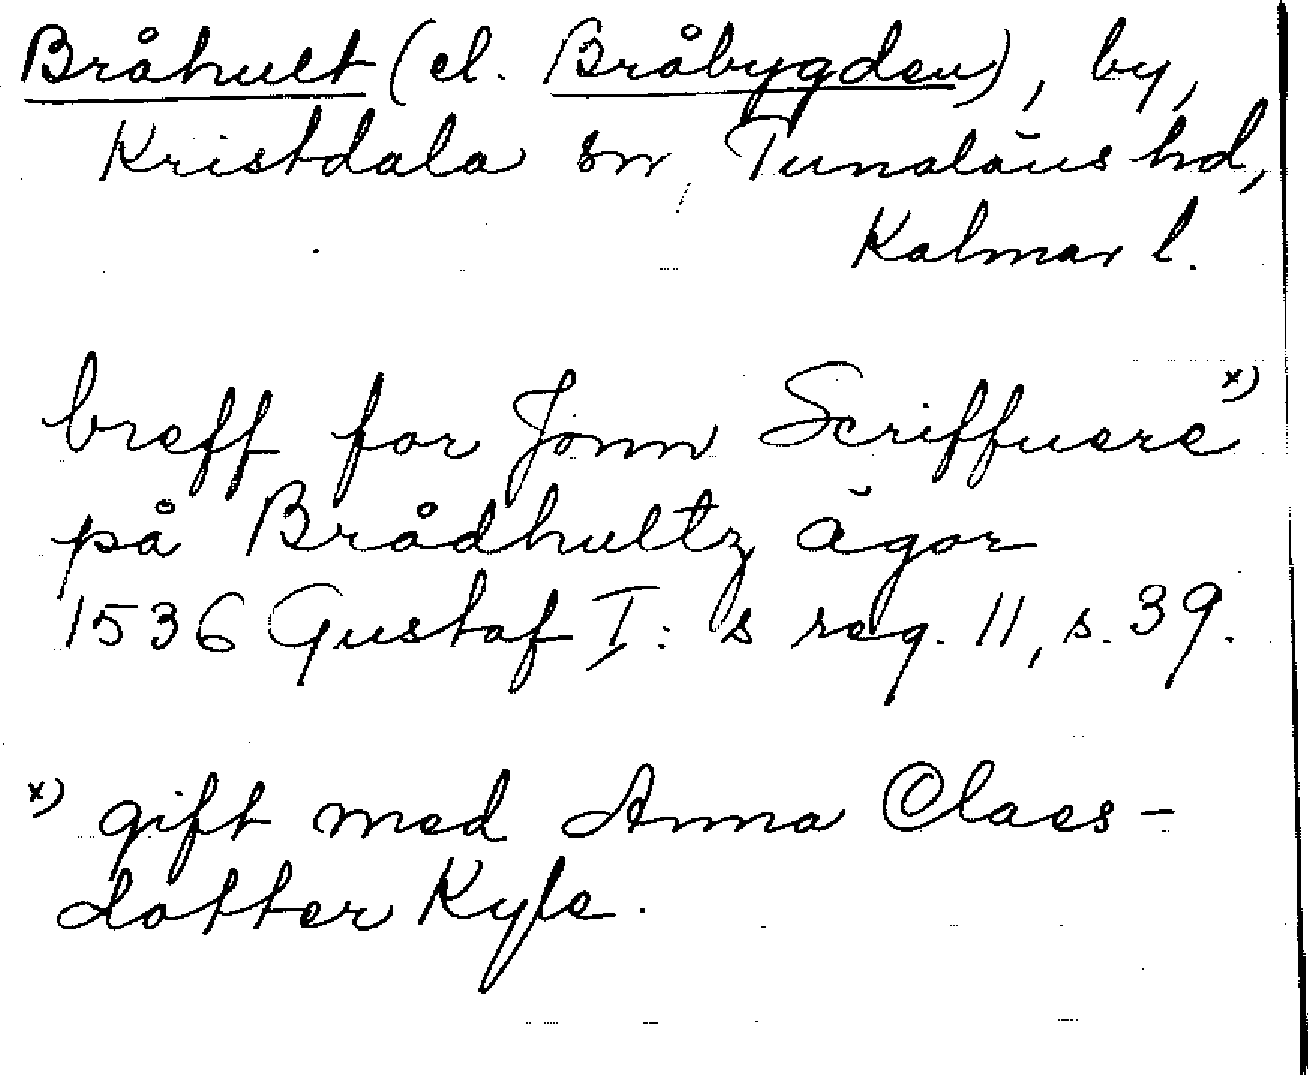 Bråhult (el. Bråbygden), by,
Kristdala sn, Tunaläns hd,
Kalmar l.
breff for Jönn Scriffuere x)
på Brådhultz ägor
1536 Gustaf I:s reg. 11, s. 39.
x) gift med Anna Claes-
dotter Kyle.